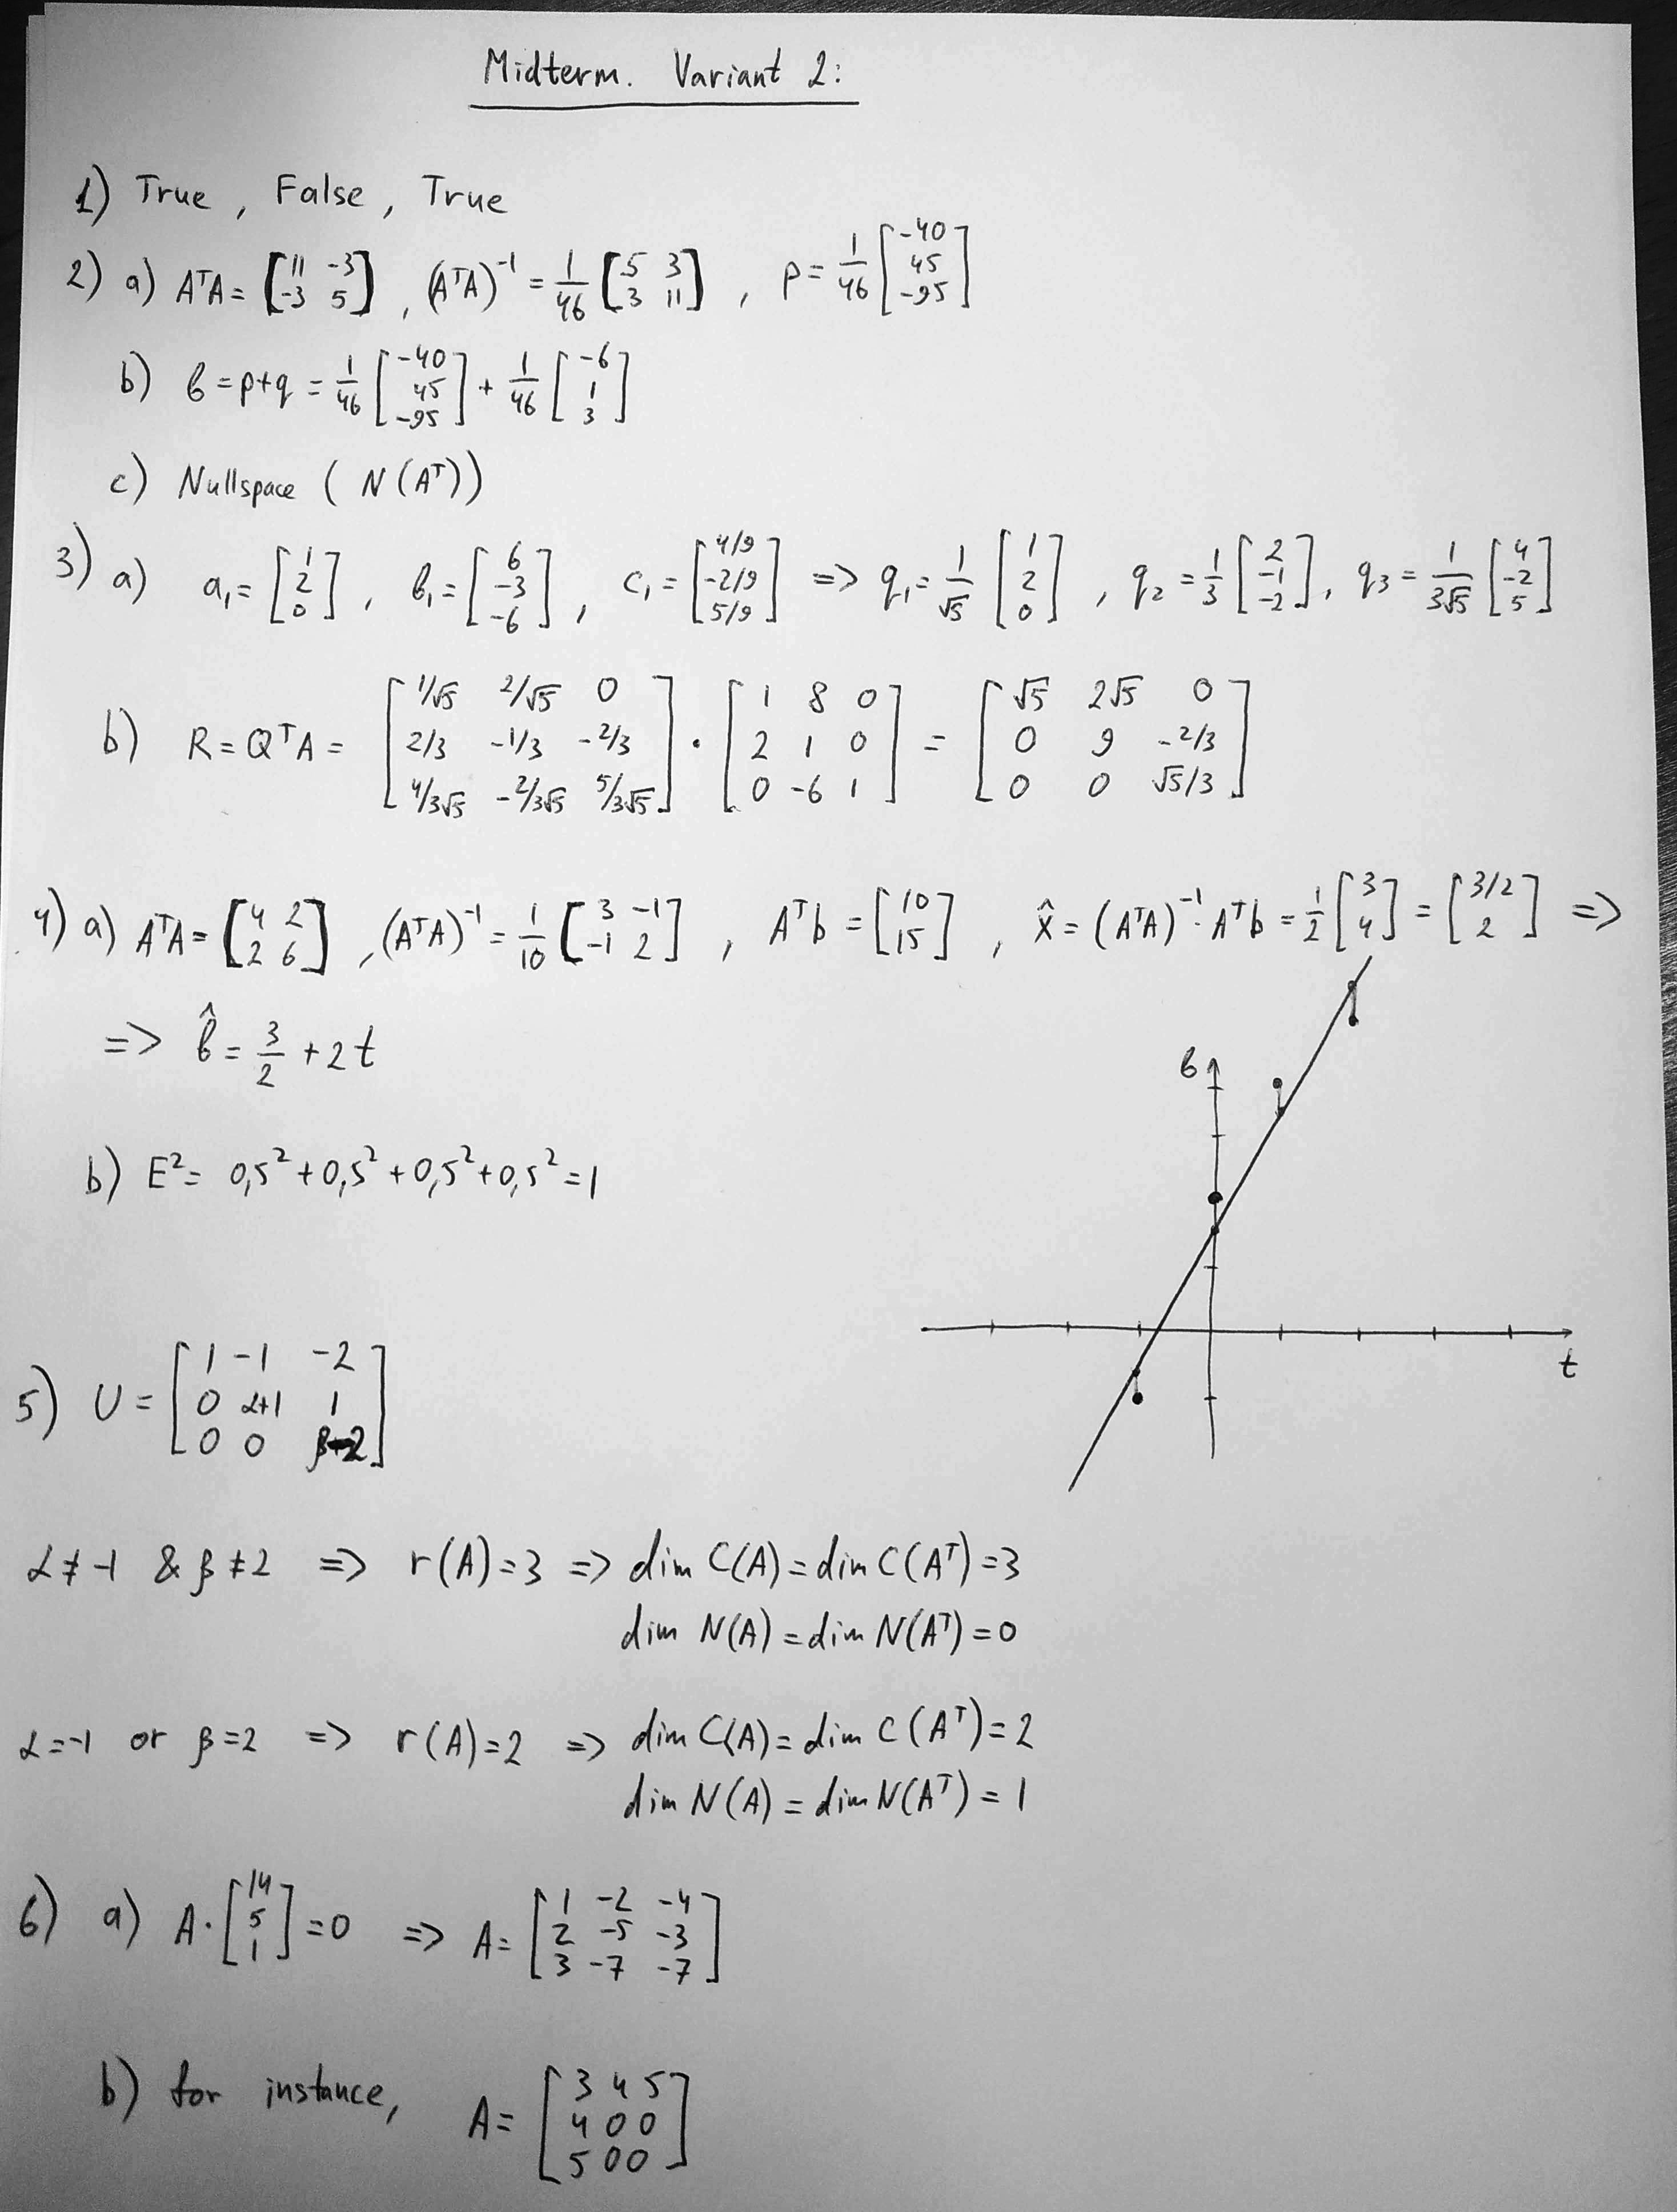 Midterm. Variant 2:
1) True, False, True
2) a) AᵀA = [11 -3; -3 5], (AᵀA)⁻¹ = 1/46 [5 3; 3 11], p = 1/46 [-40; 45; -95]
b) b = p+q = 1/46 [-40; 45; -95] + 1/46 [-6; 1; 3]
c) Nullspace (N(Aᵀ))
3) a) a₁ = [1; 2; 0], b₁ = [6; -3; -6], c₁ = [4/9; -2/9; 5/9] => q₁ = 1/√5 [1; 2; 0], q₂ = 1/3 [2; -1; -2], q₃ = 1/3√5 [4; -2; 5]
b) R = QᵀA = [1/√5 2/√5 0; 2/3 -1/3 -2/3; 4/3√5 -2/3√5 5/3√5] · [1 8 0; 2 1 0; 0 -6 1] = [√5 2√5 0; 0 9 -2/3; 0 0 √5/3]
4) a) AᵀA = [4 2; 2 6], (AᵀA)⁻¹ = 1/10 [3 -1; -1 2], Aᵀb = [10; 15], x̂ = (AᵀA)⁻¹·Aᵀb = 1/2 [3; 4] = [3/2; 2] =>
=> b̂ = 3/2 + 2t
b
b) E² = 0,5² + 0,5² + 0,5² + 0,5² = 1
t
5) U = [1 -1 -2; 0 α+1 1; 0 0 β-2]
α ≠ -1 & β ≠ 2 => r(A) = 3 => dim C(A) = dim C(Aᵀ) = 3
dim N(A) = dim N(Aᵀ) = 0
α = -1 or β = 2 => r(A) = 2 => dim C(A) = dim C(Aᵀ) = 2
dim N(A) = dim N(Aᵀ) = 1
6) a) A · [14; 5; 1] = 0 => A = [1 -2 -4; 2 -5 -3; 3 -7 -7]
b) for instance, A = [3 4 5; 4 0 0; 5 0 0]